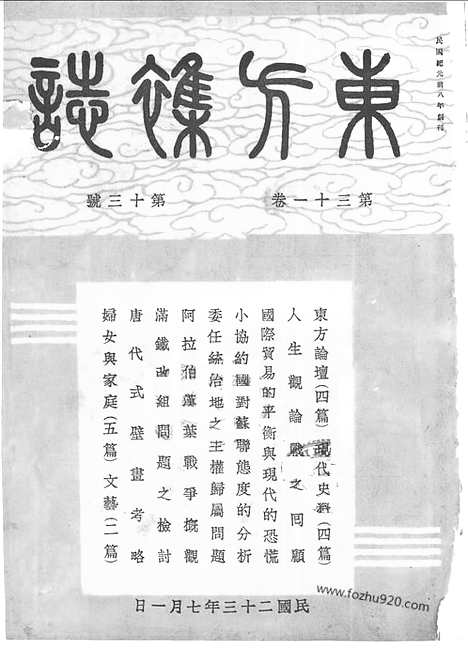 民國紀元前八年創刊
東方雜誌
第三十一卷
第十三號
東方論壇(四篇)現代史料(四篇)
人生觀論戰之回顧
國際貿易的平衡與現代的恐慌
小協約國對蘇聯態度的分析
委任統治地之主權歸屬問題
阿拉伯漢葉戰爭概觀
滿鐵改組問題之檢討
唐代式壁畫考略
婦女與家庭(五篇)文藝(二篇)
民國二十三年七月一日
www.fozhu920.com